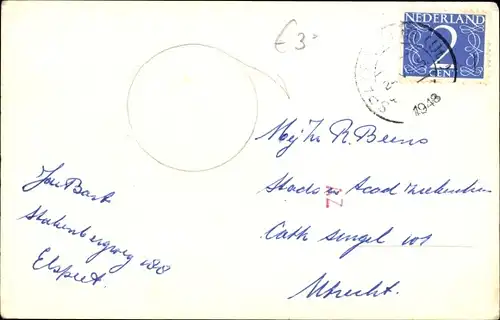 €3
NEDERLAND
2
CENT
1948
Mej Zr R. Beens
Stads & Acad Ziekenhuis
Cath singel 101
Utrecht.
ZZ
Stakenbergweg 100
Elspeet.